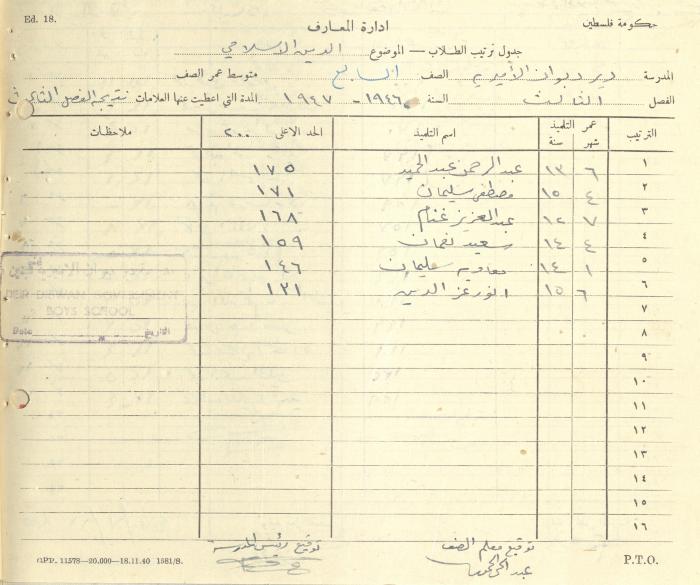 Ed. 18.
حكومة فلسطين
ادارة المعارف
جدول ترتيب الطلاب — الموضوع الدين الاسلامي
المدرسة دير دبوان الأميرية الصف السابع متوسط عمر الصف
الفصل الثالث السنة ١٩٤٦ - ١٩٤٧ المدة التي اعطيت عنها العلامات نتيجة الفصل الثاني
الترتيب عمر التلميذ شهر سنة اسم التلميذ الحد الاعلى ٢٠٠ ملاحظات
١ ٦ ١٣ عبد الرحمن عبد الحميد ١٧٥
٢ ٤ ١٥ مصطفى سليمان ١٧١
٣ ٧ ١٢ عبد العزيز غنام ١٦٨
٤ ٤ ١٤ سعيد نعمان ١٥٩
٥ ١ ١٤ معاوية سليمان ١٤٦
٦ ٦ ١٥ انور عز الدين ١٣١
٧
٨
٩
١٠
١١
١٢
١٣
١٤
١٥
١٦
DEIR DIBWAN GOVERNMENT
BOYS SCHOOL
Date التاريخ
توقيع معلم الصف
توقيع رئيس المدرسة
GPP. 11578—20.000—18.11.40 1581/S.
P.T.O.